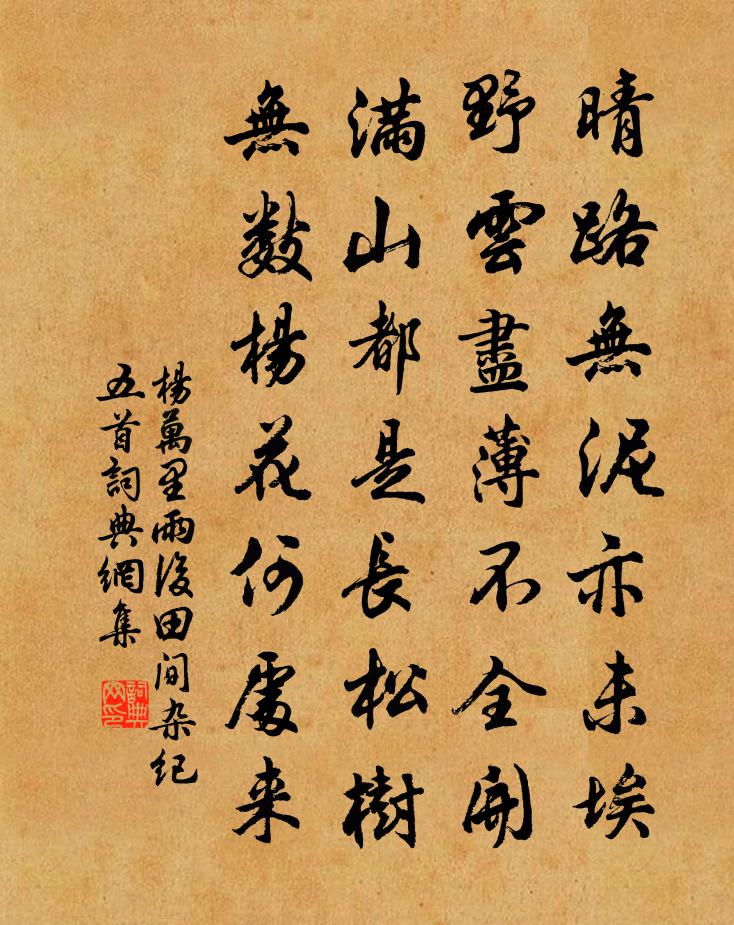 晴路無泥亦未埃
野雲盡薄不全開
滿山都是長松樹
無数楊花何處来
楊萬里雨後田间杂纪
五首詞典網集
詞典网印